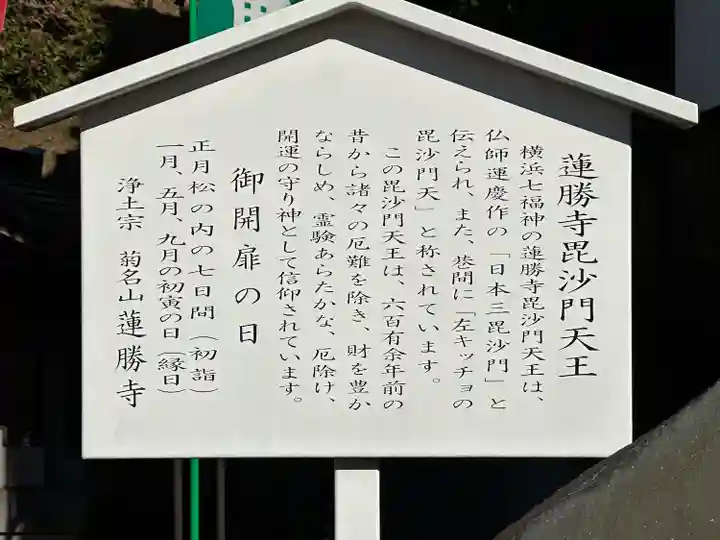 蓮勝寺毘沙門天王
横浜七福神の蓮勝寺毘沙門天王は、
仏師運慶作の「日本三毘沙門」と
伝えられ、また、巷間に「左キッチョの
毘沙門天」と称されています。
この毘沙門天王は、六百有余年前の
昔から諸々の厄難を除き、財を豊か
ならしめ、霊験あらたかな、厄除け、
開運の守り神として信仰されています。
御開扉の日
正月松の内の七日間（初詣）
一月、五月、九月の初寅の日（縁日）
浄土宗 菊名山蓮勝寺